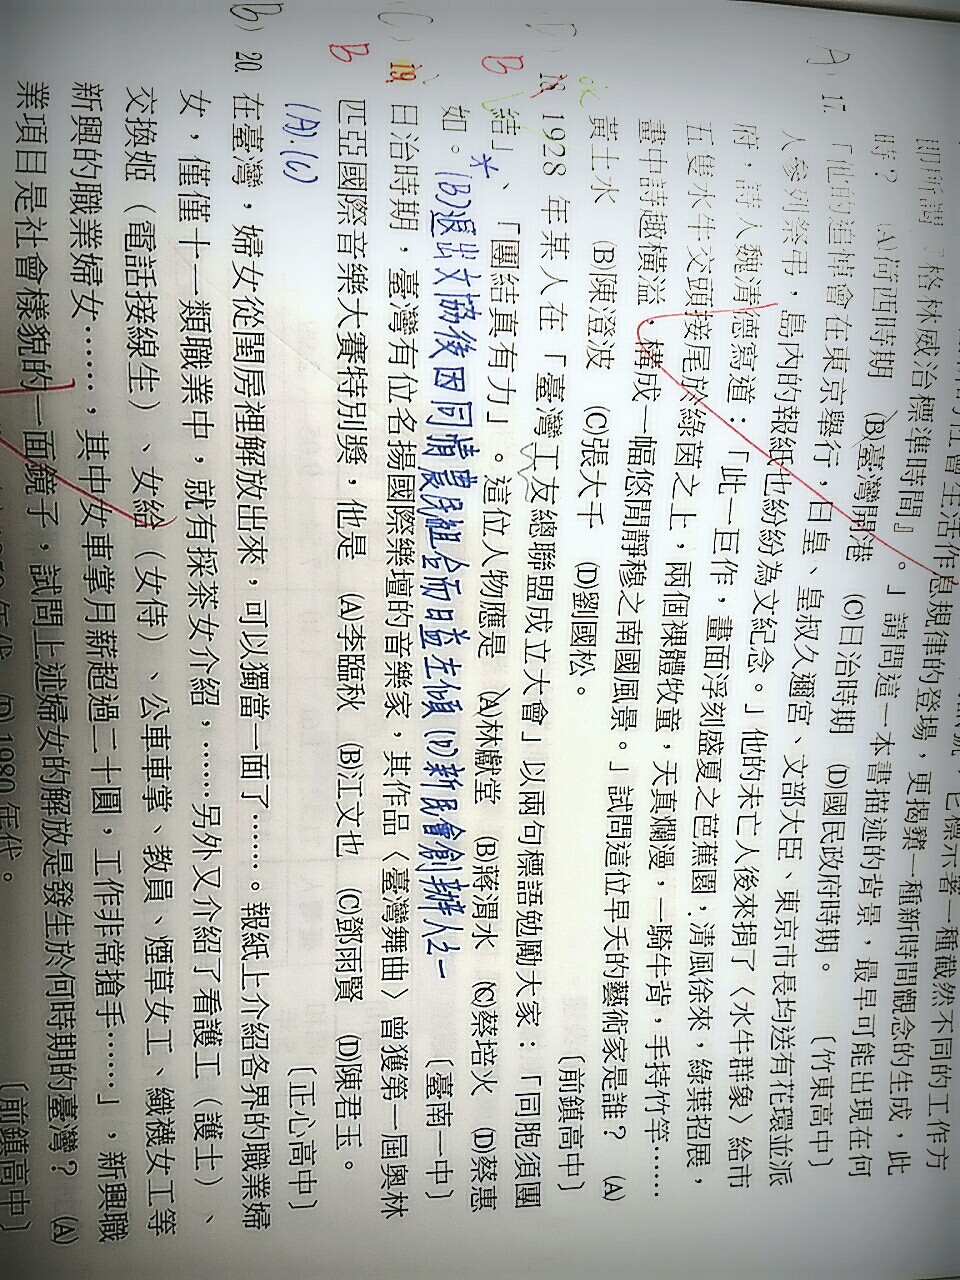 即所謂「格林威治標準時間」的登場,更揭櫫一種新時間觀念的生成,此
時?」請問這一本書描述的背景,最早可能出現在何
(A)荷西時期 (B)臺灣開港 (C)日治時期 (D)國民政府時期。〔竹東高中〕
A) 17. 「他的追悼會在東京舉行,日皇、皇叔久邇宮、文部大臣、東京市長均送有花環並派
人參列祭弔,島內的報紙也紛紛為文紀念。」他的未亡人後來捐了〈水牛群象〉給市
府,詩人魏清德寫道:「此一巨作,畫面浮刻盛夏之芭蕉園,清風徐來,綠葉招展,
五隻水牛交頭接尾於綠茵之上,兩個裸體牧童,天真爛漫,一騎牛背,手持竹竿……
畫中詩趣橫溢,構成一幅悠閒靜穆之南國風景。」試問這位早夭的藝術家是誰? (A)
ok 黃土水 (B)陳澄波 (C)張大千 (D)劉國松。〔前鎮高中〕
D) 18. 1928 年某人在「臺灣工友總聯盟成立大會」以兩句標語勉勵大家:「同胞須團
B 結」、「團結真有力」。這位人物應是 (A)林獻堂 (B)蔣渭水 (C)蔡培火 (D)蔡惠
如。〔臺南一中〕
*(B)退出文協後因同情農民組合而日益左傾 (D)新民會創辦人之一
C) 19. 日治時期,臺灣有位名揚國際樂壇的音樂家,其作品〈臺灣舞曲〉曾獲第一屆奧林
B 匹亞國際音樂大賽特別獎,他是 (A)李臨秋 (B)江文也 (C)鄧雨賢 (D)陳君玉。
(A).(C) 〔正心高中〕
B) 20. 在臺灣,婦女從閨房裡解放出來,可以獨當一面了……。報紙上介紹各界的職業婦
女,僅僅十一類職業中,就有採茶女介紹,……另外又介紹了看護工(護士)、
交換姬(電話接線生)、女給(女侍)、公車車掌、教員、煙草女工、織襪女工等
新興的職業婦女……,其中女車掌月薪超過二十圓,工作非常搶手……」,新興職
業項目是社會樣貌的一面鏡子,試問上述婦女的解放是發生於何時期的臺灣? (A)
(D)1980 年代。〔前鎮高中〕